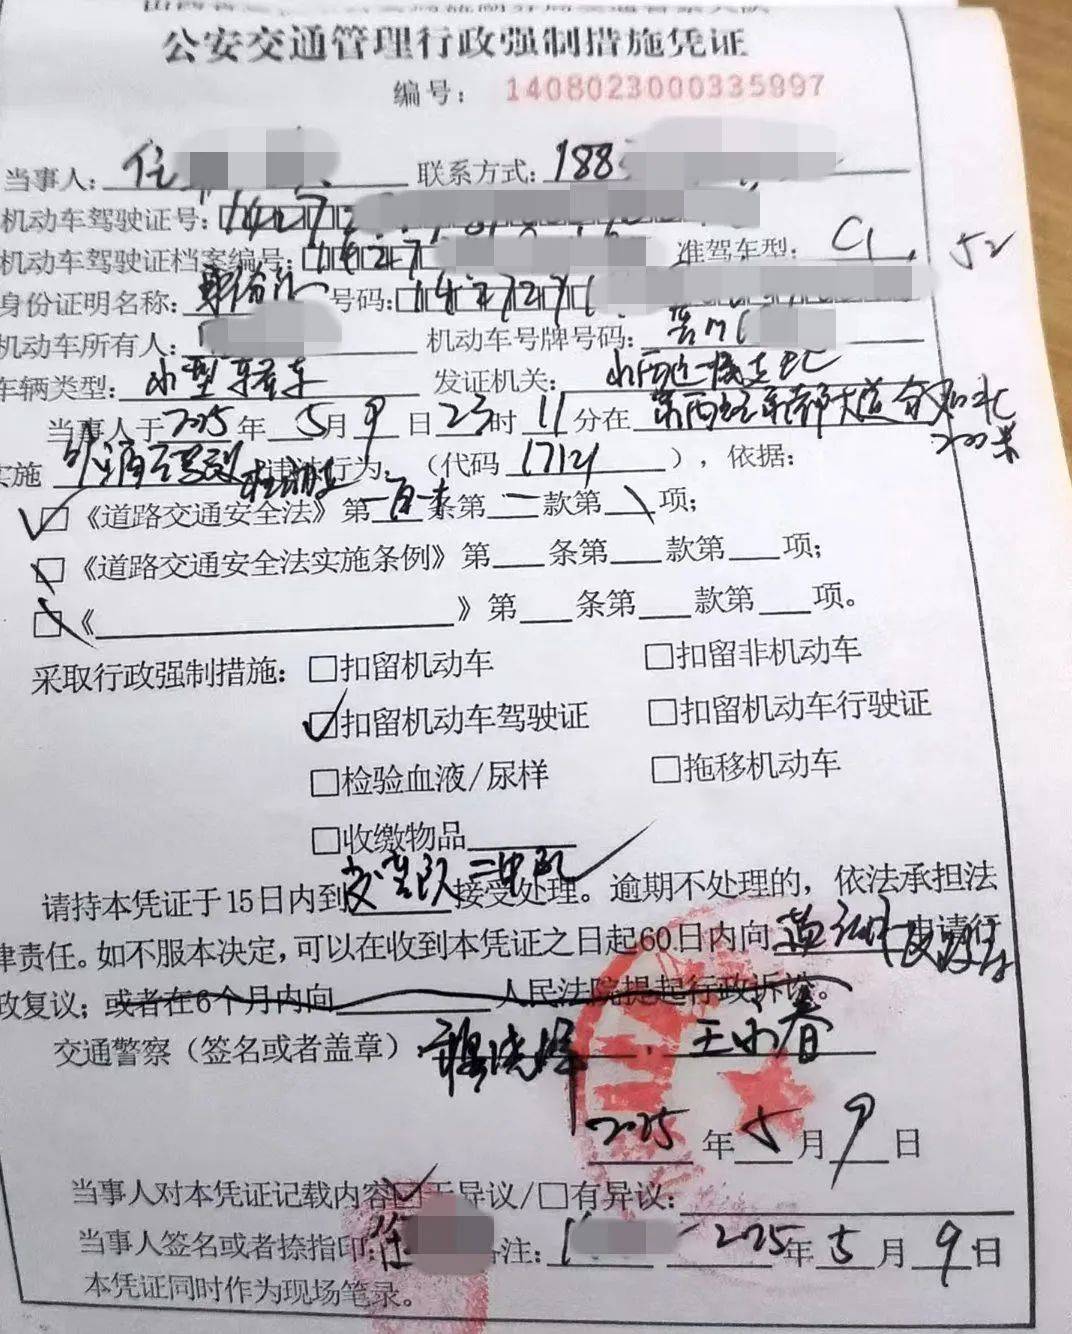 公安交通管理行政强制措施凭证
编号：1408023000335997
当事人：任 联系方式：188
机动车驾驶证号：1427
机动车驾驶证档案编号：1427 准驾车型：C1 52
身份证明名称：身份证 号码：142727
机动车所有人： 机动车号牌号码：晋M
车辆类型：小型轿车 发证机关：
当事人于2025年5月9日23时11分在
200米
实施 违法行为（代码1712），依据：
☑《道路交通安全法》第 条第一款第\项；
□《道路交通安全法实施条例》第 条第 款第 项；
□《 》第 条第 款第 项。
采取行政强制措施：□扣留机动车 □扣留非机动车
☑扣留机动车驾驶证 □扣留机动车行驶证
□检验血液/尿样 □拖移机动车
□收缴物品
请持本凭证于15日内到交警队二中队接受处理。逾期不处理的，依法承担法
律责任。如不服本决定，可以在收到本凭证之日起60日内向 申请行
政复议；或者在6个月内向 人民法院提起行政诉讼。
交通警察（签名或者盖章） 王 春
2025年5月9日
当事人对本凭证记载内容☑无异议/□有异议：
当事人签名或者捺指印：任 备注： 2025年5月9日
本凭证同时作为现场笔录。